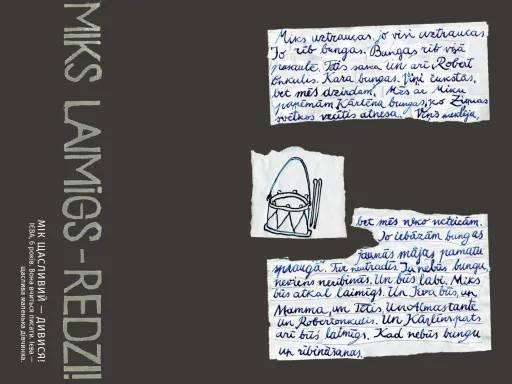 MIKS LAIMĪGS – REDZI!
МІК ЩАСЛИВИЙ — ДИВИСЯ!
ІЄВА, 6 років. Вона вчиться писати. Ієва —
щаслива маленька дівчинка.
Miks uztraucas, jo visi uztraucas.
Jo rīb bungas. Bungas rīb visā
pasaulē. Tētis saka Un arī Robert
onkulis. Kara bungas. Viņi čukstās,
bet mēs dzirdam. Mēs ar Miku
paņēmām Kārlēna bungas, ko Ziemas
svētkos vecītis atnesa. Viņš nedēja,
bet mēs neko neteicām.
Jo iebāzām bungas
jaunās mājas pamatu
spraugā. Tur neatradīs. Ja nebūs bungu,
neviens neribinās. Un būs labi. Miks
būs atkal laimīgs. Un Ieva būs, un
Mamma, un Tētis, Un Almastante
Un Robertonkulis. Un Kārlīnspats
arī būs laimīgs. Kad nebūs bungu
un ribināšanas.